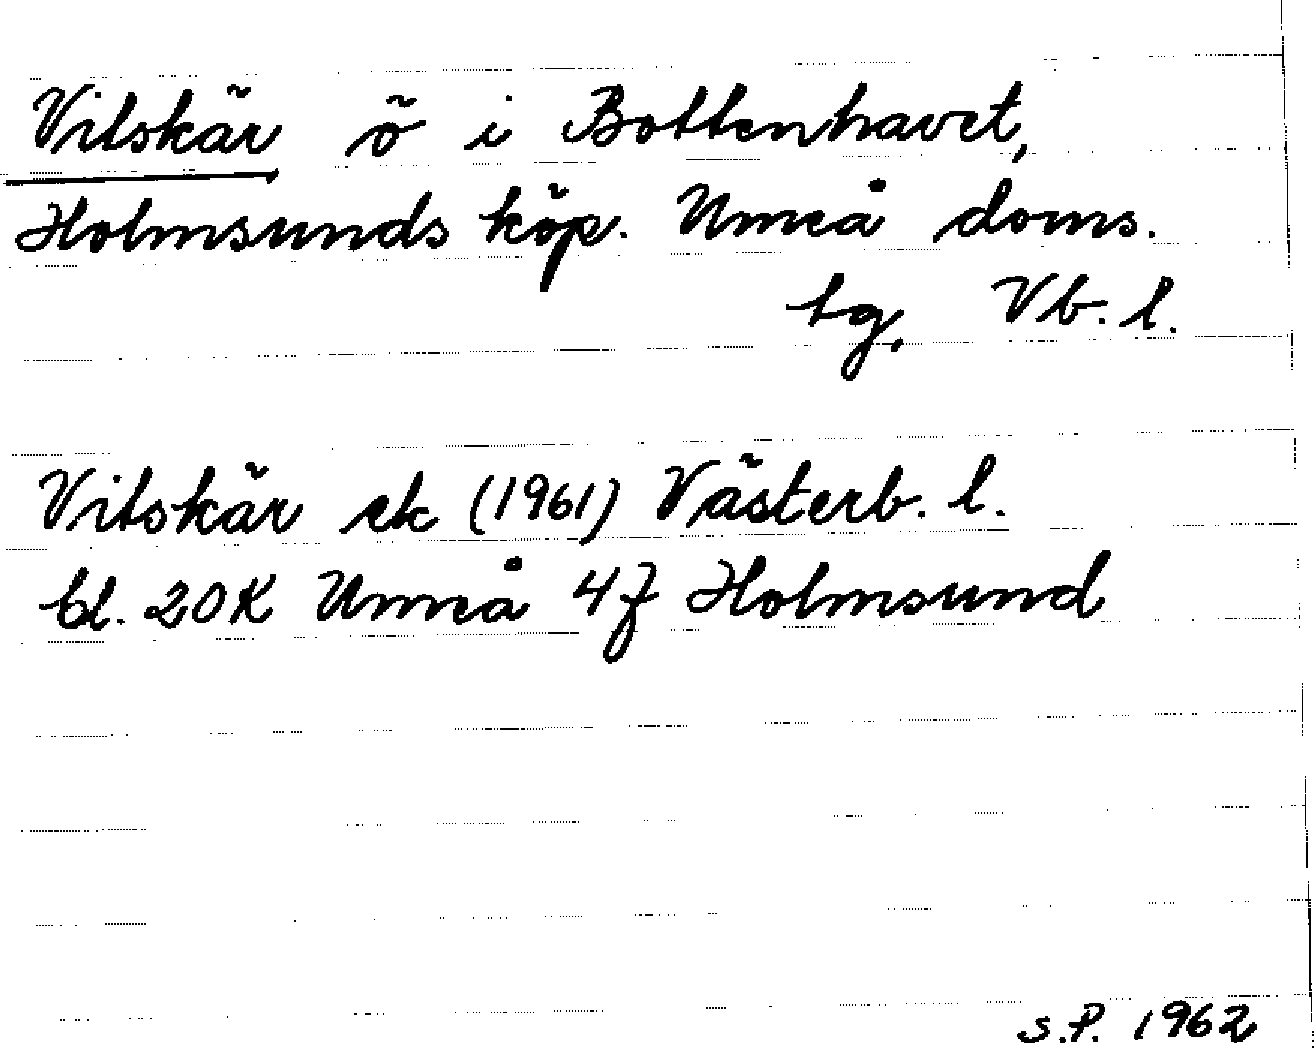 Vitskär ö i Bottenhavet,
Holmsunds köp. Umeå doms.
tg, Vb. l.
Vitskär ek (1961) Västerb. l.
bl. 20K Umeå 4f Holmsund
S.P. 1962